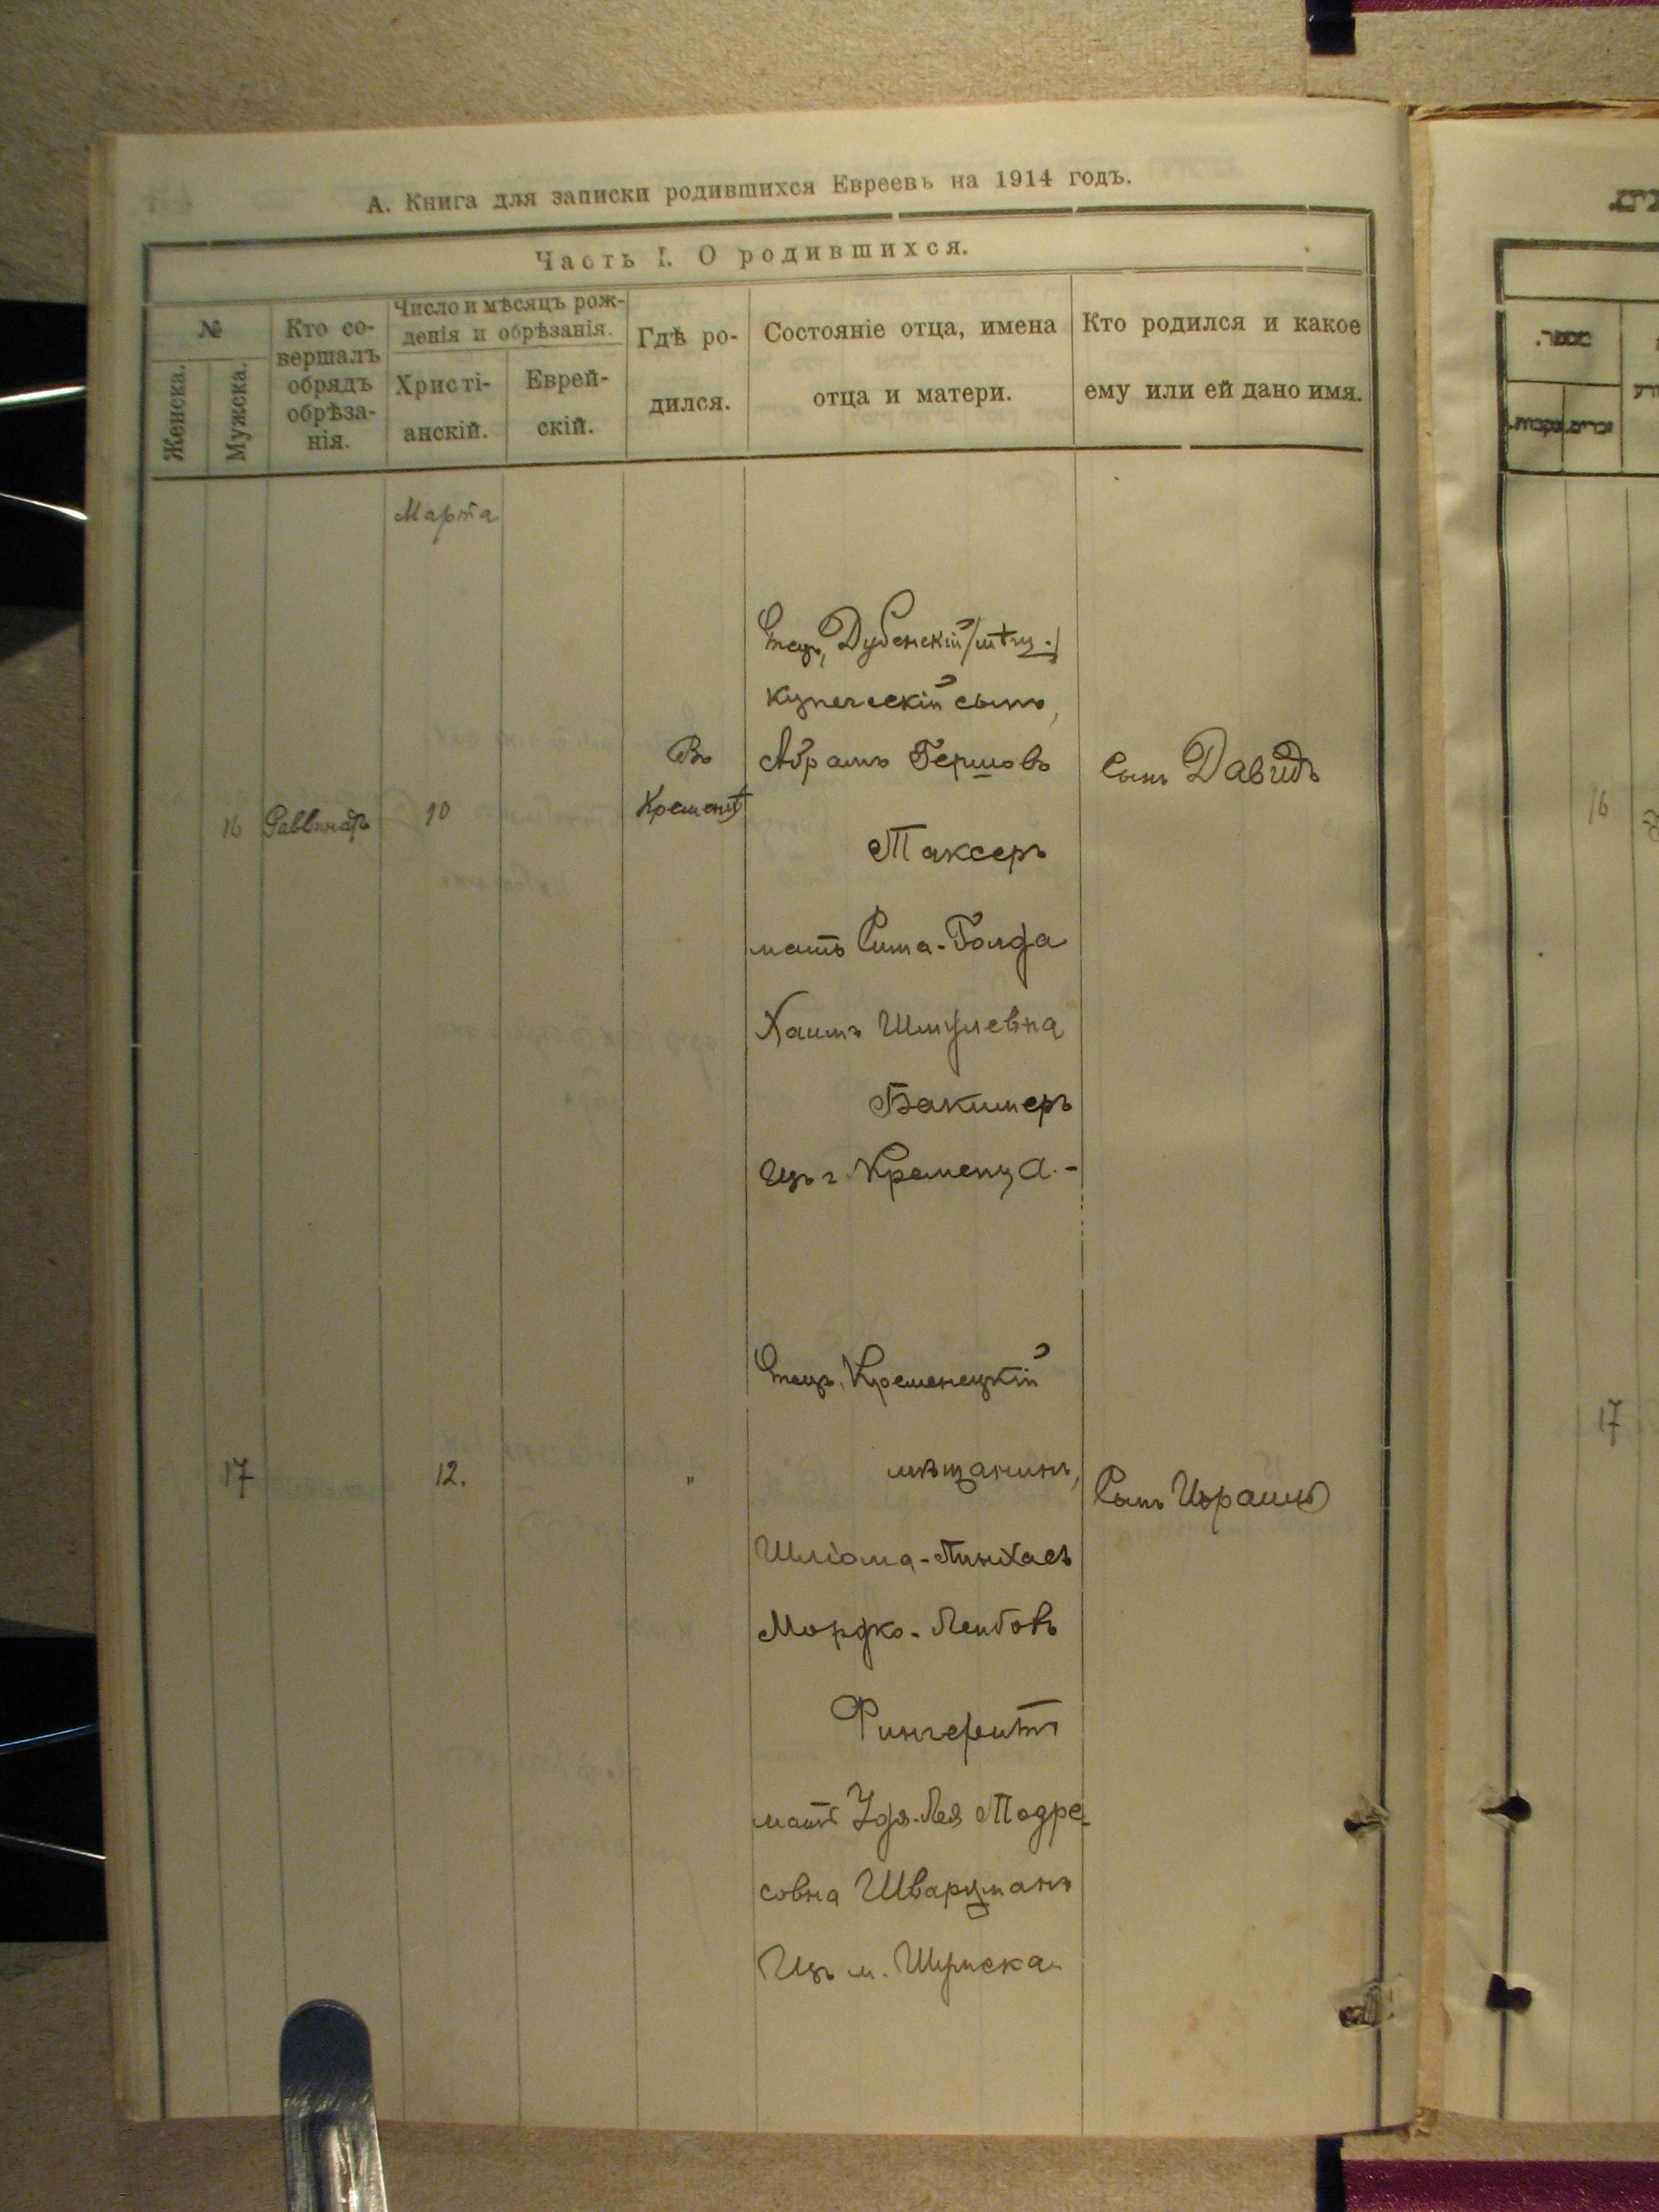 А. Книга для записки родившихся Евреевъ на 1914 годъ.
Часть I. О родившихся.
№
Женска.
Мужска.
Кто со-
вершалъ
обрядъ
обрѣза-
нія.
Число и мѣсяцъ рож-
денія и обрѣзанія.
Христі-
анскій.
Еврей-
скій.
Гдѣ ро-
дился.
Состояніе отца, имена
отца и матери.
Кто родился и какое
ему или ей дано имя.
Марта
16
10
Въ
Кременцѣ
Отецъ, Дубенскій
купеческій сынъ,
Абрамъ Гершовъ
Таксеръ
мать Сима-Голда
Хаимъ Шмулевна
Бакимеръ
Изъ г. Кременца.-
Сынъ Давидъ
17
12.
"
Отецъ, Кременецкій
мѣщанинъ,
Шліома-Пинхасъ
Мордко-Лейбовъ
Фингерутъ
мать Удя-Лея Тодре-
совна Шварцманъ
Изъ м. Шумска
Сынъ Израиль
16
17